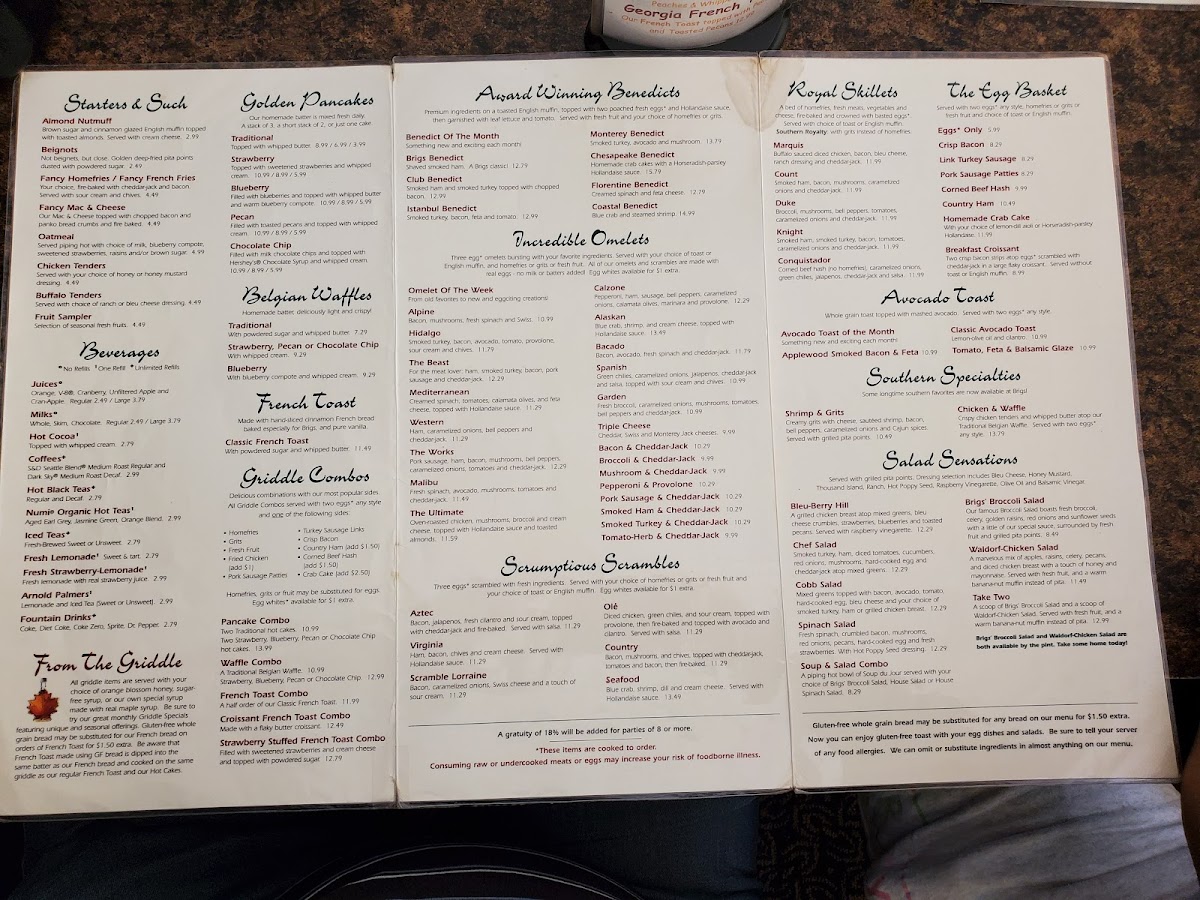 Peaches & Whipped
Georgia French
Our French Toast topped with
and Toasted Pecans
Starters & Such
Almond Nutmuff
Brown sugar and cinnamon glazed English muffin topped
with toasted almonds. Served with cream cheese. 2.99
Beignots
Not beignets, but close. Golden deep-fried pita points
dusted with powdered sugar. 2.49
Fancy Homefries / Fancy French Fries
Your choice, fire-baked with cheddar-jack and bacon.
Served with sour cream and chives. 4.49
Fancy Mac & Cheese
Our Mac & Cheese topped with chopped bacon and
panko bread crumbs and fire baked. 4.49
Oatmeal
Served piping hot with choice of milk, blueberry compote,
sweetened strawberries, raisins and/or brown sugar. 4.99
Chicken Tenders
Served with your choice of honey or honey mustard
dressing. 4.49
Buffalo Tenders
Served with choice of ranch or bleu cheese dressing. 4.49
Fruit Sampler
Selection of seasonal fresh fruits. 4.49
Beverages
No Refills One Refill Unlimited Refills
Juices
Orange, V-8®, Cranberry, Unfiltered Apple and
Cran-Apple. Regular 2.49 / Large 3.79
Milks
Whole, Skim, Chocolate. Regular 2.49 / Large 3.79
Hot Cocoa
Topped with whipped cream. 2.79
Coffees
S&D Seattle Blend® Medium Roast Regular and
Dark Sky® Medium Roast Decaf. 2.99
Hot Black Teas
Regular and Decaf. 2.79
Numi® Organic Hot Teas
Aged Earl Grey, Jasmine Green, Orange Blend. 2.99
Iced Teas
Fresh-Brewed Sweet or Unsweet. 2.79
Fresh Lemonade Sweet & tart. 2.79
Fresh Strawberry-Lemonade
Fresh lemonade with real strawberry juice. 2.99
Arnold Palmers
Lemonade and Iced Tea (Sweet or Unsweet). 2.99
Fountain Drinks
Coke, Diet Coke, Coke Zero, Sprite, Dr. Pepper. 2.79
From The Griddle
All griddle items are served with your
choice of orange blossom honey, sugar-
free syrup, or our own special syrup
made with real maple syrup. Be sure to
try our great monthly Griddle Specials
featuring unique and seasonal offerings. Gluten-free whole
grain bread may be substituted for our French bread on
orders of French Toast for $1.50 extra. Be aware that
French Toast made using GF bread is dipped into the
same batter as our French bread and cooked on the same
griddle as our regular French Toast and our Hot Cakes.
Golden Pancakes
Our homemade batter is mixed fresh daily.
A stack of 3, a short stack of 2, or just one cake.
Traditional
Topped with whipped butter. 8.99 / 6.99 / 3.99
Strawberry
Topped with sweetened strawberries and whipped
cream. 10.99 / 8.99 / 5.99
Blueberry
Filled with blueberries and topped with whipped butter
and warm blueberry compote. 10.99 / 8.99 / 5.99
Pecan
Filled with toasted pecans and topped with whipped
cream. 10.99 / 8.99 / 5.99
Chocolate Chip
Filled with milk chocolate chips and topped with
Hershey's® Chocolate Syrup and whipped cream.
10.99 / 8.99 / 5.99
Belgian Waffles
Homemade batter, deliciously light and crispy!
Traditional
With powdered sugar and whipped butter. 7.29
Strawberry, Pecan or Chocolate Chip
With whipped cream. 9.29
Blueberry
With blueberry compote and whipped cream. 9.29
French Toast
Made with hand-diced cinnamon French bread
baked especially for Brigs, and pure vanilla.
Classic French Toast
With powdered sugar and whipped butter. 11.49
Griddle Combos
Delicious combinations with our most popular sides.
All Griddle Combos served with two eggs* any style
and one of the following sides:
• Homefries
• Grits
• Fresh Fruit
• Fried Chicken
(add $1)
• Pork Sausage Patties
• Turkey Sausage Links
• Crisp Bacon
• Country Ham (add $1.50)
• Corned Beef Hash
(add $1.50)
• Crab Cake (add $2.50)
Homefries, grits or fruit may be substituted for eggs.
Egg whites* available for $1 extra.
Pancake Combo
Two Traditional hot cakes. 10.99
Two Strawberry, Blueberry, Pecan or Chocolate Chip
hot cakes. 13.99
Waffle Combo
A Traditional Belgian Waffle. 10.99
Strawberry, Blueberry, Pecan or Chocolate Chip. 12.99
French Toast Combo
A half order of our Classic French Toast. 11.99
Croissant French Toast Combo
Made with a flaky butter croissant. 12.49
Strawberry Stuffed French Toast Combo
Filled with sweetened strawberries and cream cheese
and topped with powdered sugar. 12.79
Award Winning Benedicts
Premium ingredients on a toasted English muffin, topped with two poached fresh eggs* and Hollandaise sauce,
then garnished with leaf lettuce and tomato. Served with fresh fruit and your choice of homefries or grits.
Benedict Of The Month
Something new and exciting each month!
Brigs Benedict
Shaved smoked ham. A Brigs classic. 12.79
Club Benedict
Smoked ham and smoked turkey topped with chopped
bacon. 12.99
Istanbul Benedict
Smoked turkey, bacon, feta and tomato. 12.99
Monterey Benedict
Smoked turkey, avocado and mushroom. 13.79
Chesapeake Benedict
Homemade crab cakes with a Horseradish-parsley
Hollandaise sauce. 15.79
Florentine Benedict
Creamed spinach and feta cheese. 12.79
Coastal Benedict
Blue crab and steamed shrimp. 14.99
Incredible Omelets
Three egg* omelets bursting with your favorite ingredients. Served with your choice of toast or
English muffin, and homefries or grits or fresh fruit. All of our omelets and scrambles are made with
real eggs - no milk or batters added! Egg whites available for $1 extra.
Omelet Of The Week
From old favorites to new and eggciting creations!
Alpine
Bacon, mushrooms, fresh spinach and Swiss. 10.99
Hidalgo
Smoked turkey, bacon, avocado, tomato, provolone,
sour cream and chives. 11.79
The Beast
For the meat lover: ham, smoked turkey, bacon, pork
sausage and cheddar-jack. 12.29
Mediterranean
Creamed spinach, tomatoes, calamata olives, and feta
cheese, topped with Hollandaise sauce. 11.29
Western
Ham, caramelized onions, bell peppers and
cheddar-jack. 11.29
The Works
Pork sausage, ham, bacon, mushrooms, bell peppers,
caramelized onions, tomatoes and cheddar-jack. 12.29
Malibu
Fresh spinach, avocado, mushrooms, tomatoes and
cheddar-jack. 11.49
The Ultimate
Oven-roasted chicken, mushrooms, broccoli and cream
cheese, topped with Hollandaise sauce and toasted
almonds. 11.59
Calzone
Pepperoni, ham, sausage, bell peppers, caramelized
onions, calamata olives, marinara and provolone. 12.29
Alaskan
Blue crab, shrimp, and cream cheese, topped with
Hollandaise sauce. 13.49
Bacado
Bacon, avocado, fresh spinach and cheddar-jack. 11.79
Spanish
Green chilies, caramelized onions, jalapenos, cheddar-jack
and salsa, topped with sour cream and chives. 10.99
Garden
Fresh broccoli, caramelized onions, mushrooms, tomatoes,
bell peppers and cheddar-jack. 10.99
Triple Cheese
Cheddar, Swiss and Monterey Jack cheeses. 9.99
Bacon & Cheddar-Jack 10.29
Broccoli & Cheddar-Jack 9.99
Mushroom & Cheddar-Jack 9.99
Pepperoni & Provolone 10.29
Pork Sausage & Cheddar-Jack 10.29
Smoked Ham & Cheddar-Jack 10.29
Smoked Turkey & Cheddar-Jack 10.29
Tomato-Herb & Cheddar-Jack 9.99
Scrumptious Scrambles
Three eggs* scrambled with fresh ingredients. Served with your choice of homefries or grits or fresh fruit and
your choice of toast or English muffin. Egg whites available for $1 extra.
Aztec
Bacon, jalapenos, fresh cilantro and sour cream, topped
with cheddar-jack and fire-baked. Served with salsa. 11.29
Virginia
Ham, bacon, chives and cream cheese. Served with
Hollandaise sauce. 11.29
Scramble Lorraine
Bacon, caramelized onions, Swiss cheese and a touch of
sour cream. 11.29
Olé
Diced chicken, green chilies, and sour cream, topped with
provolone, then fire-baked and topped with avocado and
cilantro. Served with salsa. 11.29
Country
Bacon, mushrooms, and chives, topped with cheddar-jack,
tomatoes and bacon, then fire-baked. 11.29
Seafood
Blue crab, shrimp, dill and cream cheese. Served with
Hollandaise sauce. 13.49
A gratuity of 18% will be added for parties of 8 or more.
*These items are cooked to order.
Consuming raw or undercooked meats or eggs may increase your risk of foodborne illness.
Royal Skillets
A bed of homefries, fresh meats, vegetables and
cheese, fire-baked and crowned with basted eggs*.
Served with choice of toast or English muffin.
Southern Royalty: with grits instead of homefries.
Marquis
Buffalo sauced diced chicken, bacon, bleu cheese,
ranch dressing and cheddar-jack. 11.99
Count
Smoked ham, bacon, mushrooms, caramelized
onions and cheddar-jack. 11.99
Duke
Broccoli, mushrooms, bell peppers, tomatoes,
caramelized onions and cheddar-jack. 11.29
Knight
Smoked ham, smoked turkey, bacon, tomatoes,
caramelized onions and cheddar-jack. 11.29
Conquistador
Corned beef hash (no homefries), caramelized onions,
green chilies, jalapenos, cheddar-jack and salsa. 11.29
The Egg Basket
Served with two eggs* any style, homefries or grits or
fresh fruit and choice of toast or English muffin.
Eggs* Only 5.99
Crisp Bacon 8.29
Link Turkey Sausage 8.29
Pork Sausage Patties 8.29
Corned Beef Hash 9.99
Country Ham 10.49
Homemade Crab Cake
With your choice of lemon-dill aioli or Horseradish-parsley
Hollandaise. 11.99
Breakfast Croissant
Two crisp bacon strips atop eggs*, scrambled with
cheddar-jack in a large flaky croissant. Served without
toast or English muffin. 8.99
Avocado Toast
Whole grain toast topped with mashed avocado. Served with two eggs* any style.
Avocado Toast of the Month
Something new and exciting each month!
Applewood Smoked Bacon & Feta 10.99
Classic Avocado Toast
Lemon-olive oil and cilantro. 10.99
Tomato, Feta & Balsamic Glaze 10.99
Southern Specialties
Some longtime southern favorites are now available at Brigs!
Shrimp & Grits
Creamy grits with cheese, sautéed shrimp, bacon,
bell peppers, caramelized onions and Cajun spices.
Served with grilled pita points. 10.49
Chicken & Waffle
Crispy chicken tenders and whipped butter atop our
Traditional Belgian Waffle. Served with two eggs*
any style. 13.79
Salad Sensations
Served with grilled pita points. Dressing selection includes Bleu Cheese, Honey Mustard,
Thousand Island, Ranch, Hot Poppy Seed, Raspberry Vinegarette, Olive Oil and Balsamic Vinegar.
Bleu-Berry Hill
A grilled chicken breast atop mixed greens, bleu
cheese crumbles, strawberries, blueberries and toasted
pecans. Served with raspberry vinegarette. 12.29
Chef Salad
Smoked turkey, ham, diced tomatoes, cucumbers,
red onions, mushrooms, hard-cooked egg and
cheddar-jack atop mixed greens. 12.29
Cobb Salad
Mixed greens topped with bacon, avocado, tomato,
hard-cooked egg, bleu cheese and your choice of
smoked turkey, ham or grilled chicken breast. 12.29
Spinach Salad
Fresh spinach, crumbled bacon, mushrooms,
red onions, pecans, hard-cooked egg and fresh
strawberries. With Hot Poppy Seed dressing. 12.29
Soup & Salad Combo
A piping hot bowl of Soup du Jour served with your
choice of Brigs' Broccoli Salad, House Salad or House
Spinach Salad. 8.29
Brigs' Broccoli Salad
Our famous Broccoli Salad boasts fresh broccoli,
celery, golden raisins, red onions and sunflower seeds
with a little of our special sauce, surrounded by fresh
fruit and grilled pita points. 8.49
Waldorf-Chicken Salad
A marvelous mix of apples, raisins, celery, pecans,
and diced chicken breast with a touch of honey and
mayonnaise. Served with fresh fruit, and a warm
banana-nut muffin instead of pita. 11.49
Take Two
A scoop of Brigs' Broccoli Salad and a scoop of
Waldorf-Chicken Salad. Served with fresh fruit, and a
warm banana-nut muffin instead of pita. 12.99
Brigs' Broccoli Salad and Waldorf-Chicken Salad are
both available by the pint. Take some home today!
Gluten-free whole grain bread may be substituted for any bread on our menu for $1.50 extra.
Now you can enjoy gluten-free toast with your egg dishes and salads. Be sure to tell your server
of any food allergies. We can omit or substitute ingredients in almost anything on our menu.